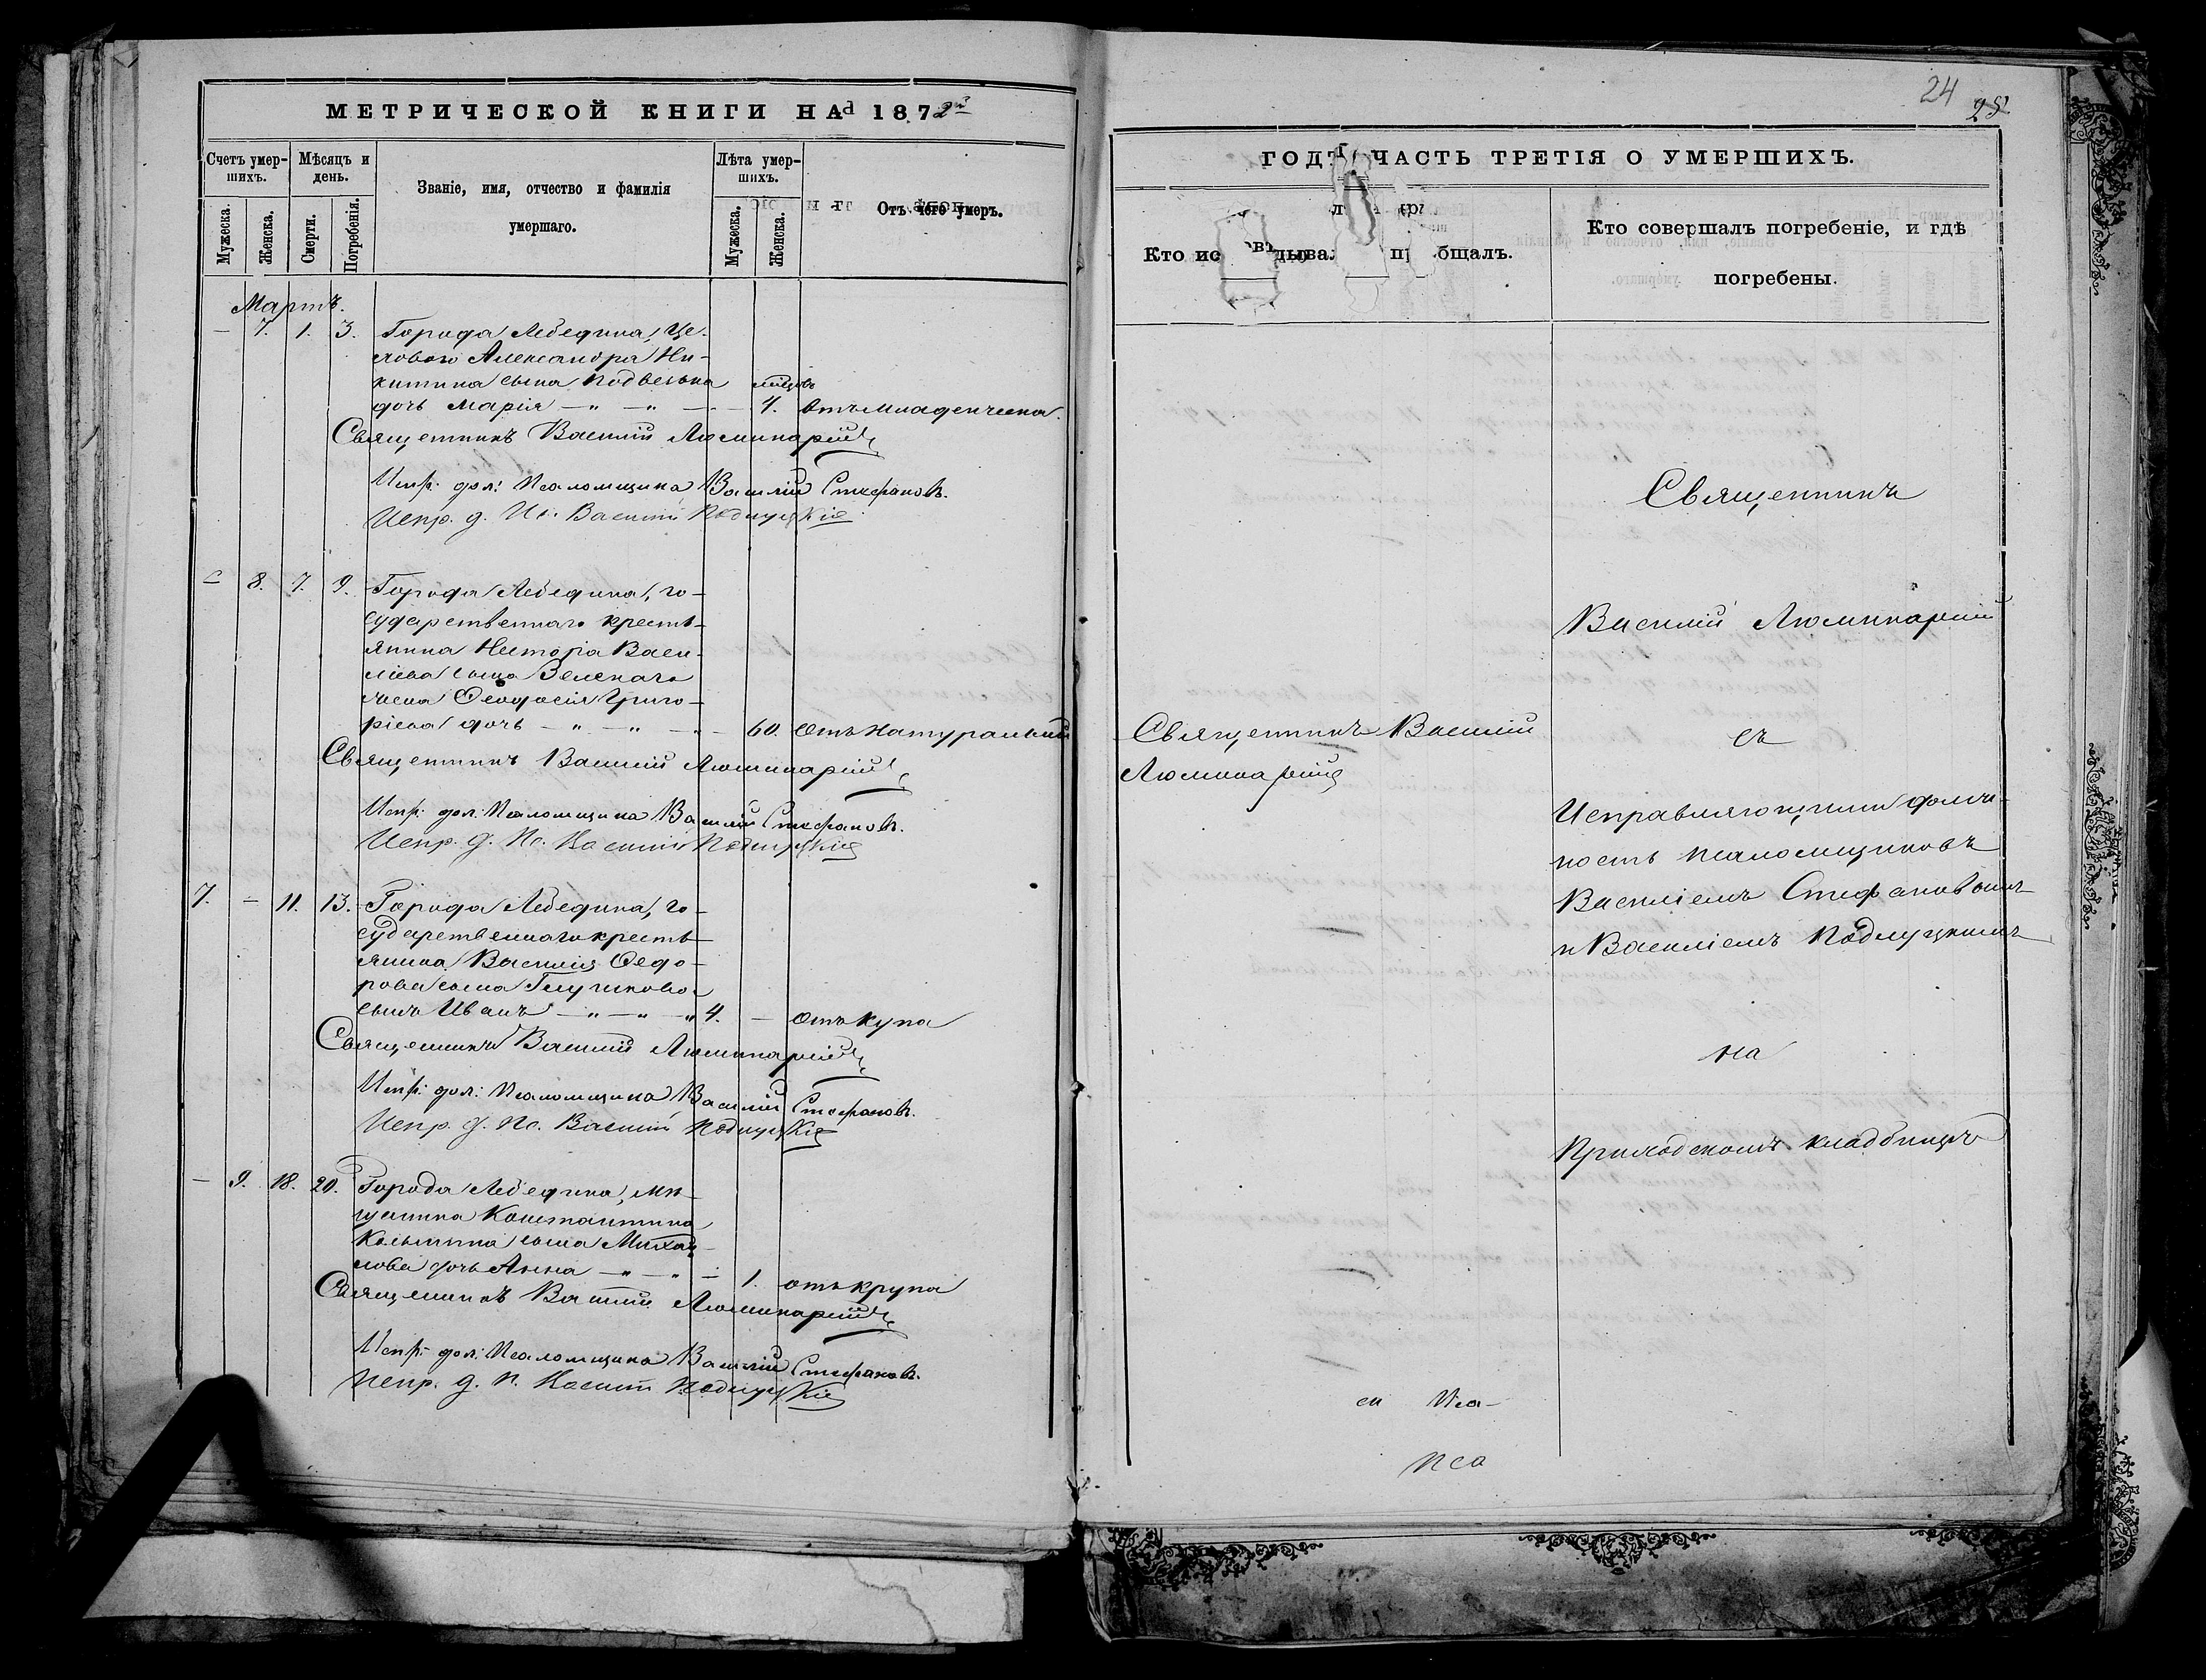 МЕТРИЧЕСКОЙ КНИГИ НА 1872й
Счетъ умер-
шихъ.
Мѣсяцъ и
день.
Званіе, имя, отчество и фамилія
умершаго.
Лѣта умер-
шихъ.
Отъ чего умеръ.
Мужеска.
Женска.
Смерти.
Погребенія.
Мужеска.
Женска.
Мартъ.
— 7. 1. 3. Города Лебедина, Це-
ховаго Александра Ни-
китина сына Подвезька
дочь Марія — " — " — мѣсяцовъ 4. отъ младенческа.
Священникъ Василій Люминарскій
Испр: дол: Псаломщика Василій Стефановъ.
Испр. д. Пс. Василій Подлуцкій
— 8. 7. 9. Города Лебедина, го-
сударственнаго кресть-
янина Нестора Васи-
ліева сына Зеленаго
жена Ѳеодосія Григо-
ріева дочь — " — " — 60. отъ натуральной
Священникъ Василій Люминарскій
Испр: дол: Псаломщика Василій Стефановъ.
Испр. д. Пс. Василій Подлуцкій
7. — 11. 13. Города Лебедина, го-
сударственнаго кресть-
янина Василія Ѳедо-
рова сына
сынъ Иванъ — " — " — " 4. — отъ купа
Священникъ Василій Люминарскій
Испр: дол: Псаломщика Василій Стефановъ.
Испр. д. Пс. Василій Подлуцкій
— 9. 18. 20. Города Лебедина, мѣ-
щанина Константина
Козьмина сына Михай-
лова дочь Анна — " — " — 1. отъ крупа
Священникъ Василій Люминарскій
Испр: дол: Псаломщика Василій Стефановъ.
Испр. д. П. Василій Подлуцкій
24
25
ГОДЪ ЧАСТЬ ТРЕТІЯ О УМЕРШИХЪ.
Кто исповѣдывалъ и пріобщалъ.
Кто совершалъ погребеніе, и гдѣ
погребены.
Священникъ
Василій Люминарскій
Священникъ Василій
Люминарскій
съ
Исправляющими долж-
ность псаломщиковъ
Василіемъ Стефановымъ
и Василіемъ Подлуцкимъ
на
Приходскомъ кладбищѣ
Пса-
Пса